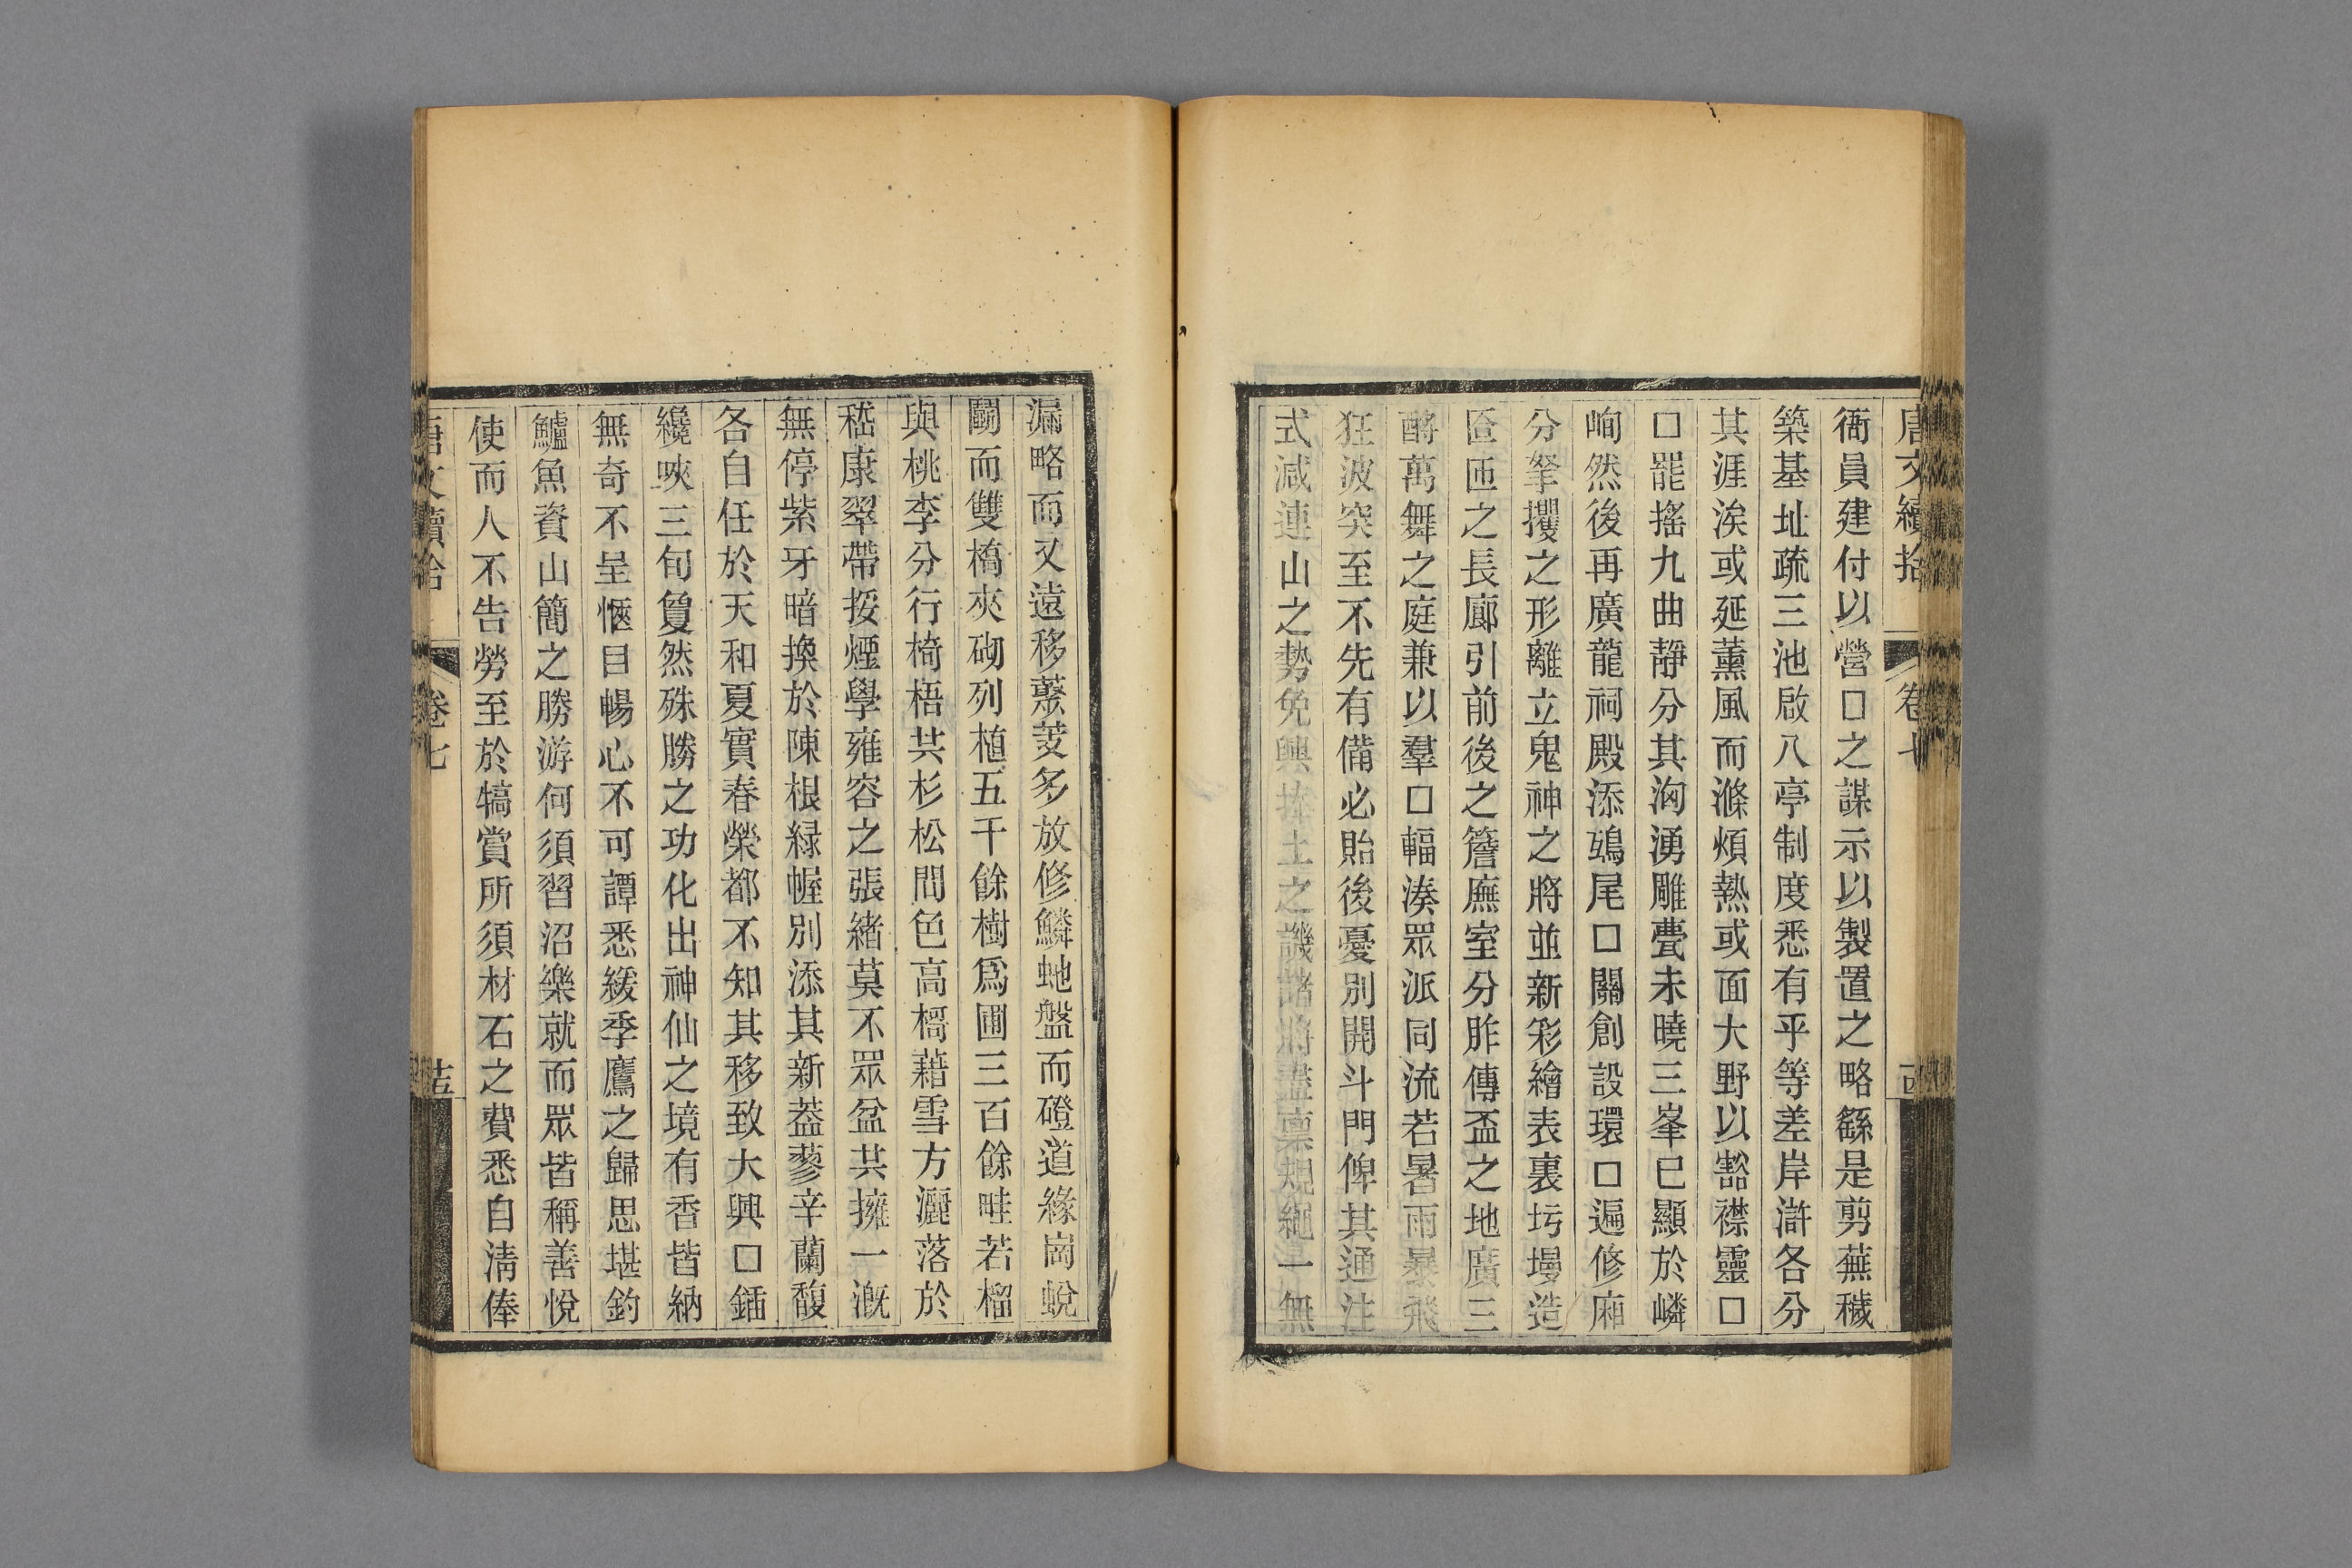 唐文續拾 卷七
衙員建付以營□之謀示以製置之略繇是剪蕪穢
築基址疏三池啟八亭制度悉有乎等差岸滸各分
其涯涘或延薰風而滌煩熱或面大野以豁襟靈□
□罷搖九曲靜分其洶湧雕甍未曉三峯已顯於嶙
峋然後再廣龍祠殿添鴟尾□關創設環□遍修廂
分拏攫之形離立鬼神之將並新彩繪表裏圬墁造
匼匝之長廊引前後之簷廡室分胙傳盃之地廣三
酹萬舞之庭兼以羣□輻湊眾派同流若暑雨暴飛
狂波突至不先有備必貽後憂別開斗門俾其通注
式減連山之勢免興捧土之譏諸將盡稟規繩一無
漏略而又遠移蔆芰多放修鱗虵盤而磴道緣崗蛻
鬬而雙橋夾砌列植五千餘樹爲圃三百餘畦若榴
與桃李分行椅梧共杉松間色高槅藉雪方灑落於
嵇康翠帶挼煙學雍容之張緒莫不眾盆共擁一漑
無停紫牙暗換於陳根緑幄別添其新葢蓼辛蘭馥
各自任於天和夏實春榮都不知其移致大興□鍤
纔唊三旬敻然殊勝之功化出神仙之境有香皆納
無奇不呈愜目暢心不可譚悉緩季鷹之歸思堪釣
鱸魚資山簡之勝游何須習沼樂就而眾皆稱善悅
使而人不告勞至於犒賞所須材石之費悉自淸俸
唐文續拾 卷七